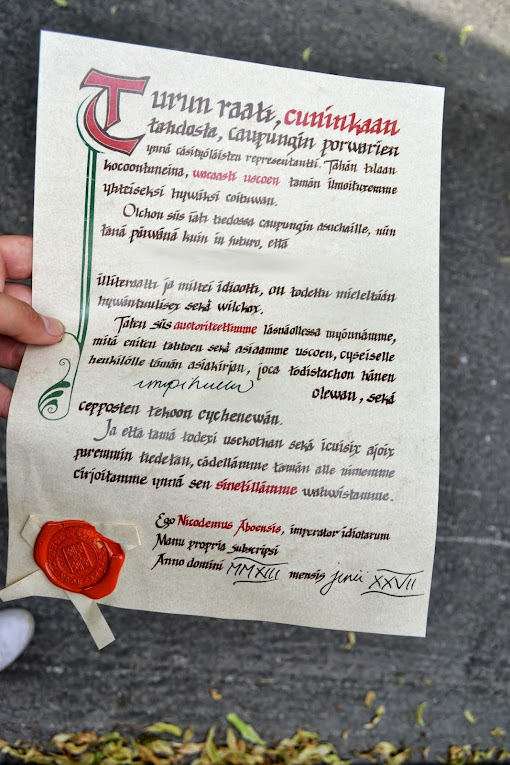 Turun raati, cuninkaan
tahdosta, caupungin porwarien
ynnä cäsityöläisten representantti. Tähän tilaan
kocoontuneina, wacaasti uscoen tämän ilmoituxemme
yhteiseksi hywäksi coituwan.
Olchon siis iäti tiedossa caupungin asuchaille, niin
tänä päiwänä kuin in futuro, että
illiteraatti ja miltei idiootti, on todettu mieleltään
hywäntuulisex sekä wilckax.
Täten siis auctoriteettimme läsnäollessa myönnämme,
mitä eniten tahtoen sekä asiaamme uscoen, cyseiselle
henkilölle tämän asiakirjan, joca todistachon hänen
olewan, sekä
cepposten tekoon cychenewän.
Ja että tämä todexi uschottan sekä icuisix ajoix
paremmin tiedetän, cädellämme tämän alle nimemme
cirjoitamme ynnä sen sinetillämme wahwistamme.
Ego Nicodemus Aboensis, imperator idiotarum
Manu propria subscripsi
Anno domini MMXIII mensis junii XXVII